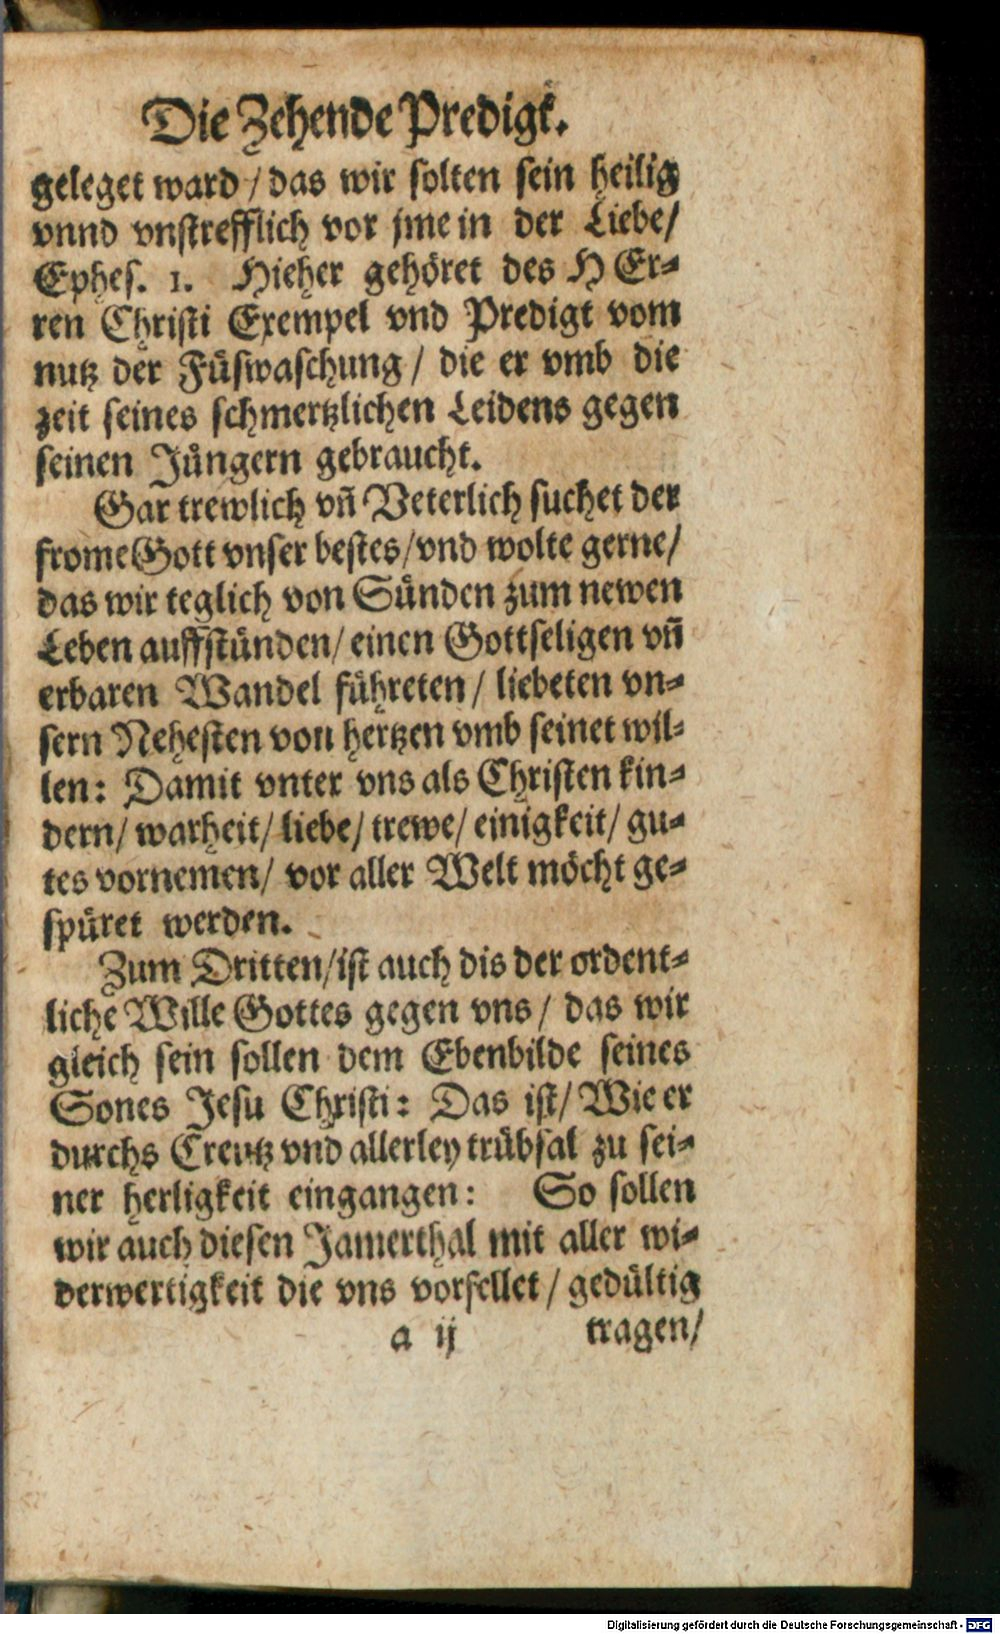 Die Zehende Predigt.
geleget ward / das wir solten sein heilig
vnnd vnstrefflich vor jme in der Liebe/
Ephes. 1. Hieher gehöret des HEr-
ren Christi Exempel vnd Predigt vom
nutz der Füswaschung / die er vmb die
zeit seines schmertzlichen Leidens gegen
seinen Jüngern gebraucht.
Gar trewlich vñ Veterlich suchet der
frome Gott vnser bestes/vnd wolte gerne/
das wir teglich von Sünden zum newen
Leben auffstünden/ einen Gottseligen vñ
erbaren Wandel führeten / liebeten vn-
sern Nehesten von hertzen vmb seinet wil-
len: Damit vnter vns als Christen kin-
dern/ warheit/ liebe/ trewe/ einigkeit/ gu-
tes vornemen/ vor aller Welt möcht ge-
spüret werden.
Zum Dritten/ist auch dis der ordent-
liche Wille Gottes gegen vns / das wir
gleich sein sollen dem Ebenbilde seines
Sones Jesu Christi: Das ist/ Wie er
durchs Creutz vnd allerley trübsal zu sei-
ner herligkeit eingangen: So sollen
wir auch diesen Jamerthal mit aller wi-
derwertigkeit die vns vorfellet / gedültig
a ij tragen/
Digitalisierung gefördert durch die Deutsche Forschungsgemeinschaft - DFG